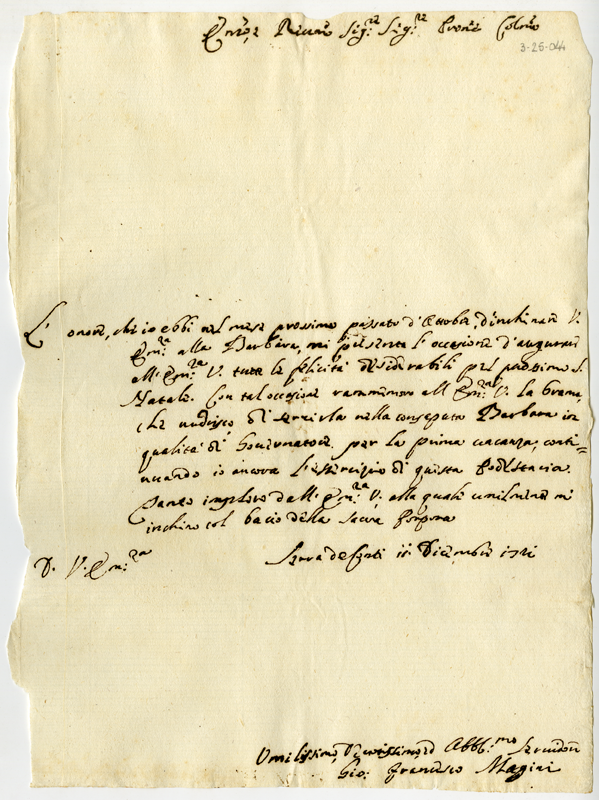 Sig.re Sig.re Prone Colmo
3-25-04
L'onore, che io ebbi nel mese prossimo passato d'Ottobre, d'inchinare V.
Em.za alla Barbara, mi presenta l'occasione d'augurare
all'Em.za V. tutte le felicità desiderabili nel prossimo S.
Natale. Con tal occasione rammemoro all'Em.za V. la brama,
che nudrisco di servirla nella consaputa Barbara in
qualità di Governatore per la prima vacanza, conti=
nuando io ancora l'essercizio di questa Podestaria.
Tanto imploro dall'Em.za V. alla quale umilmente m'
inchino col bacio della Sacra Porpora
D. V. Em.za
Serra de Conti 11 Dicembre
Umilissimo, Devotissimo, ed Obbl.mo Servidore
Gio: Francesco Magini